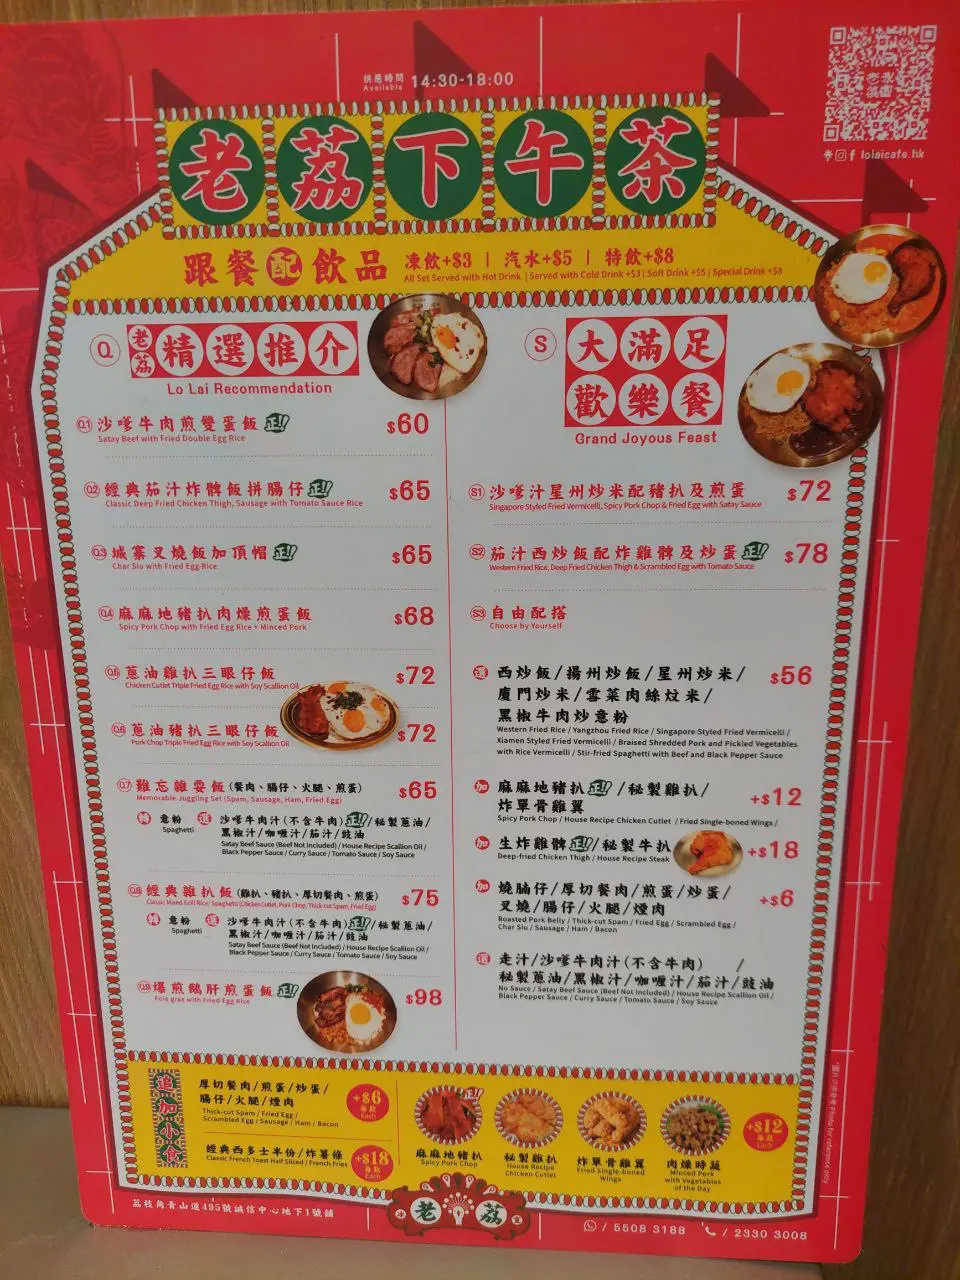 供應時間 14:30-18:00
Available
lolaicafe.hk
老荔下午茶
跟餐配飲品 凍飲+$3 | 汽水+$5 | 特飲+$8
All Set Served with Hot Drink | Served with Cold Drink +$3 | Soft Drink +$5 | Special Drink +$8
Q 老荔精選推介
Lo Lai Recommendation
Q1 沙嗲牛肉煎雙蛋飯 正!! $60
Satay Beef with Fried Double Egg Rice
Q2 經典茄汁炸髀飯拼腸仔 正!! $65
Classic Deep Fried Chicken Thigh, Sausage with Tomato Sauce Rice
Q3 城寨叉燒飯加頂帽 正!! $65
Char Siu with Fried Egg Rice
Q4 麻麻地豬扒肉燥煎蛋飯 $68
Spicy Pork Chop with Fried Egg Rice + Minced Pork
Q5 蔥油雞扒三眼仔飯 $72
Chicken Cutlet Triple Fried Egg Rice with Soy Scallion Oil
Q6 蔥油豬扒三眼仔飯 $72
Pork Chop Triple Fried Egg Rice with Soy Scallion Oil
Q7 難忘雜耍飯(餐肉、腸仔、火腿、煎蛋) $65
Memorable Juggling Set (Spam, Sausage, Ham, Fried Egg)
轉 意粉 選 沙嗲牛肉汁(不含牛肉)正!!/秘製蔥油/
Spaghetti 黑椒汁/咖喱汁/茄汁/豉油
Satay Beef Sauce (Beef Not Included) / House Recipe Scallion Oil /
Black Pepper Sauce / Curry Sauce / Tomato Sauce / Soy Sauce
Q8 經典雜扒飯(雞扒、豬扒、厚切餐肉、煎蛋) $75
Classic Mixed Grill Rice/ Spaghetti (Chicken Cutlet, Pork Chop, Thick-cut Spam, Fried Egg)
轉 意粉 選 沙嗲牛肉汁(不含牛肉)正!!/秘製蔥油/
Spaghetti 黑椒汁/咖喱汁/茄汁/豉油
Satay Beef Sauce (Beef Not Included) / House Recipe Scallion Oil /
Black Pepper Sauce / Curry Sauce / Tomato Sauce / Soy Sauce
Q9 爆煎鵝肝煎蛋飯 正!! $98
Foie gras with Fried Egg Rice
S 大滿足
歡樂餐
Grand Joyous Feast
S1 沙嗲汁星州炒米配豬扒及煎蛋 $72
Singapore Styled Fried Vermicelli, Spicy Pork Chop & Fried Egg with Satay Sauce
S2 茄汁西炒飯配炸雞髀及炒蛋 正!! $78
Western Fried Rice, Deep Fried Chicken Thigh & Scrambled Egg with Tomato Sauce
S3 自由配搭
Choose by Yourself
選 西炒飯/揚州炒飯/星州炒米/ $56
廈門炒米/雪菜肉絲炆米/
黑椒牛肉炒意粉
Western Fried Rice / Yangzhou Fried Rice / Singapore Styled Fried Vermicelli /
Xiamen Styled Fried Vermicelli / Braised Shredded Pork and Pickled Vegetables
with Rice Vermicelli / Stir-fried Spaghetti with Beef and Black Pepper Sauce
加 麻麻地豬扒正!!/秘製雞扒/ +$12
炸單骨雞翼
Spicy Pork Chop / House Recipe Chicken Cutlet / Fried Single-boned Wings /
加 生炸雞髀正!!/秘製牛扒 +$18
Deep-fried Chicken Thigh / House Recipe Steak
加 燒腩仔/厚切餐肉/煎蛋/炒蛋/ +$6
叉燒/腸仔/火腿/煙肉
Roasted Pork Belly / Thick-cut Spam / Fried Egg / Scrambled Egg /
Char Siu / Sausage / Ham / Bacon
選 走汁/沙嗲牛肉汁(不含牛肉) /
秘製蔥油/黑椒汁/咖喱汁/茄汁/豉油
No Sauce / Satay Beef Sauce (Beef Not Included) / House Recipe Scallion Oil /
Black Pepper Sauce / Curry Sauce / Tomato Sauce / Soy Sauce
追加小食
厚切餐肉/煎蛋/炒蛋/
腸仔/火腿/煙肉
Thick-cut Spam / Fried Egg /
Scrambled Egg / Sausage / Ham / Bacon
+$6
每款
Each
經典西多士半份/炸薯條
Classic French Toast Half Sliced / French Fries
+$18
每款
Each
正!!
麻麻地豬扒
Spicy Pork Chop
秘製雞扒
House Recipe
Chicken Cutlet
炸單骨雞翼
Fried Single-boned
Wings
肉燥時蔬
Minced Pork
with Vegetables
of the Day
+$12
每款
Each
*圖片只供參考 Photo for reference only
荔枝角青山道495號誠信中心地下1號舖
老荔
/ 5508 3188 / 2330 3008